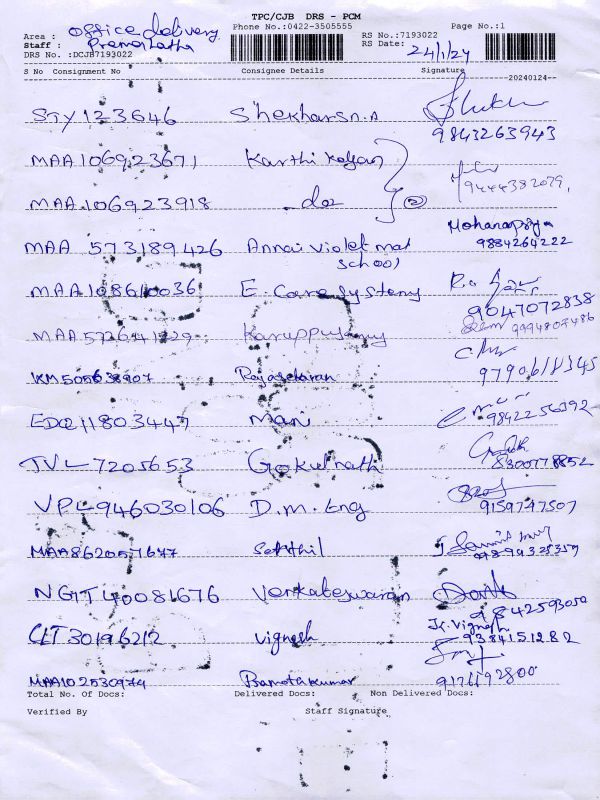 TPC/CJB DRS - PCM
Area : office delivery Phone No.:0422-3505555 Page No.:1
Staff : RS No.:7193022
DRS No. :DCJB7193022 RS Date: 24/1/24
S No Consignment No Consignee Details Signature
20240124--
STY 123646 Shekharsn.A
9843263943
MAA 106923671 Karthikeyan
9444382079,
MAA 106923918 do2 ②
Mohanapriya
MAA 573189426 Annai violet mat 9884264222
school
MAA 108610036 E. Care systems
9047072838
Karuppusamy 9994807486
KM505638907 Rajasekaran 9790618345
EDQ11803447 mani 9842256392
TVL 7205653 Gokulnath 8300778852
VPL 946030106 D.m. Eng 9159747507
MAA862057677 Sakthil
NGT40081676 Venkateswaran
9842593050
Jr. Vignesh
CLT 30196212 vignesh 9384151282
MAA102530974 9176192800
Total No. Of Docs: Delivered Docs: Non Delivered Docs:
Verified By Staff Signature